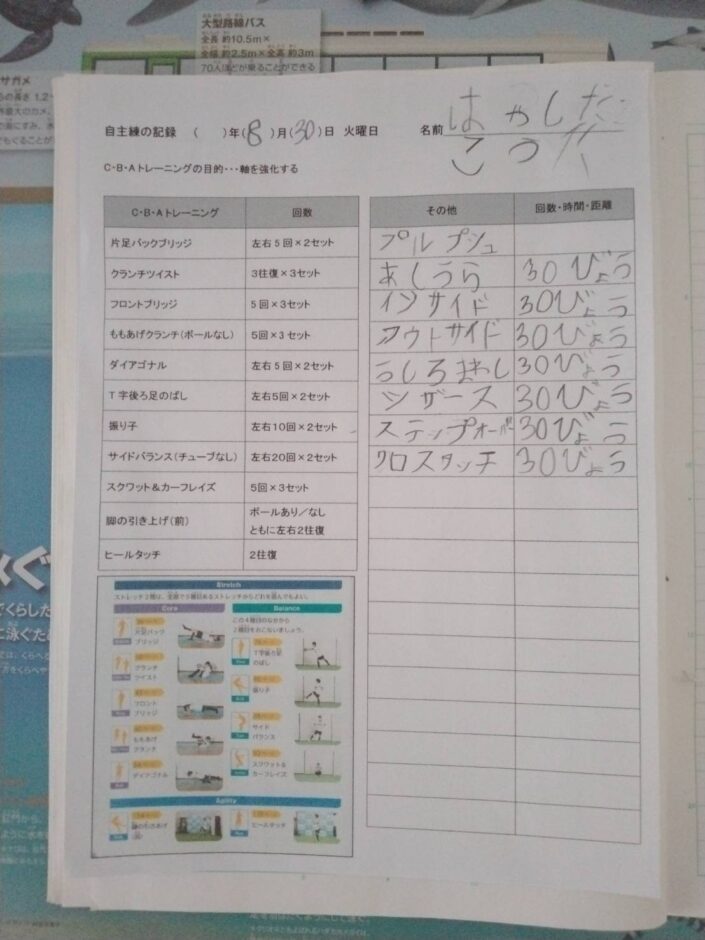 大型路線バス
全長 約10.5m×
全幅 約2.5m×全高 約3m
70人ほどが乗ることができる
サガメ
自主練の記録 ( )年(8)月(30)日 火曜日 名前 はやした
こうが
C・B・Aトレーニングの目的・・・軸を強化する
C・B・Aトレーニング 回数
片足バックブリッジ 左右5回×2セット
クランチツイスト 3往復×3セット
フロントブリッジ 5回×3セット
ももあげクランチ(ボールなし) 5回×3セット
ダイアゴナル 左右5回×2セット
T字後ろ足のばし 左右5回×2セット
振り子 左右10回×2セット
サイドバランス(チューブなし) 左右20回×2セット
スクワット&カーフレイズ 5回×3セット
脚の引き上げ(前) ボールあり/なし
ともに左右2往復
ヒールタッチ 2往復
その他 回数・時間・距離
プルプシュ
あしうら 30びょう
インサイド 30びょう
アウトサイド 30びょう
うしろまわし 30びょう
シザース 30びょう
ステップオーバー 30びょう
クロスタッチ 30びょう
Stretch
Core
Balance
片足バック
ブリッジ
クランチ
ツイスト
フロント
ブリッジ
ももあげ
クランチ
ダイアゴナル
T字後ろ足
のばし
振り子
サイド
バランス
スクワット&
カーフレイズ
Agility
ヒールタッチ